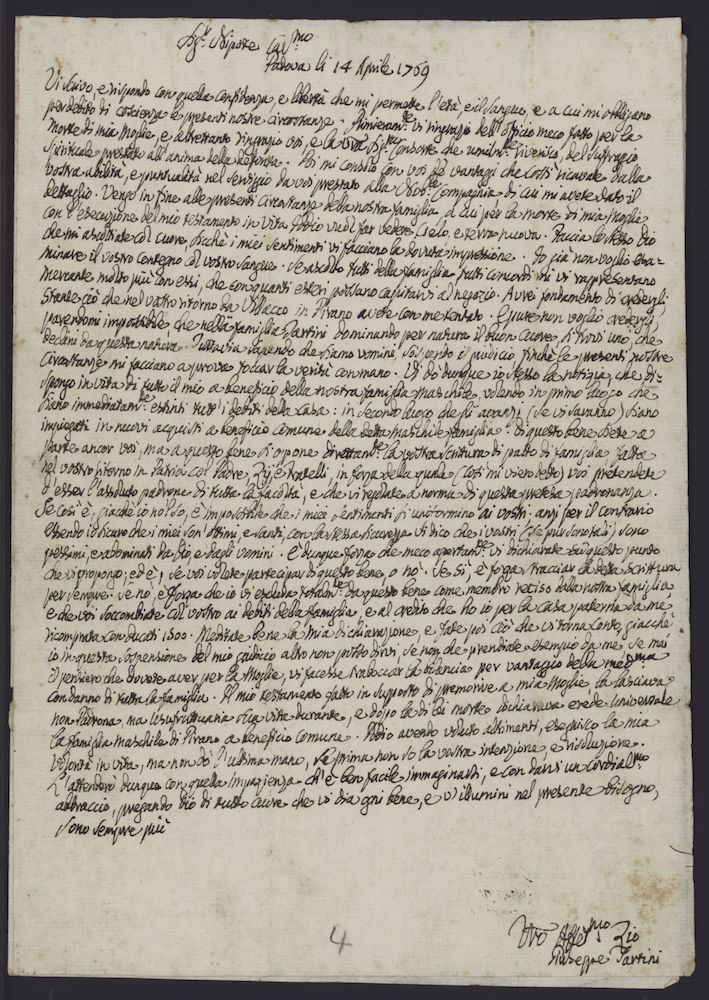 Sig.r Nipote Car.mo
Padova li 14 Aprile 1769
Vi scrivo, e rispondo con quella confidenza, e libertà che mi permette l'età, e il sangue, e a cui mi obbligano
per debito di coscienza le presenti nostre circostanze. Primieram.te vi ringrazio dell'officio meco fatto per la
morte di mia Moglie, e altrettanto ringrazio voi, e la Sig.ra Consorte che umilm.te riverisco, del suffragio
spirituale prestato all'anima della defonta. Poi mi consolo con voi de' vantaggi che costì ricavate dalla
vostra abilità, e puntualità nel servigio da voi prestato alla Nob. Compagnia di cui mi avete dato il
dettaglio. Vengo in fine alle presenti circostanze della nostra famiglia, a cui per la morte di mia Moglie
con l'esecuzione del mio testamento in vita Iddio vuol far vedere Cielo, e terra nuova. Faccia lo stesso Dio
che mi ascoltiate col cuore, sicchè i miei sentimenti vi facciano la dovuta impressione. Io già non voglio esa=
minare il vostro contegno col vostro sangue. Se ascolto tutti della famiglia, tutti concordi mi vi rappresentano
mercante molto più con essi, che con quanti esteri possano capitarvi al negozio. Avrei fondamento di crederli,
stante ciò che nel vostro ritorno da Villacco in Pirano avete con me tentato. Eppure non voglio crederli,
parendomi impossibile che nella famiglia Tartini dominando per natura il buon cuore, si trovi uno, che
declini da questa natura. Tuttavia sapendo che siamo uomini, sospendo il giudicio, finchè le presenti nostre
circostanze mi facciano a prova toccar la verità con mano. Vi do dunque io stesso la notizia, che di=
spongo in vita di tutto il mio a beneficio della nostra famiglia maschile, volendo in primo luogo che
siano immediatam.te estinti tutti i debiti della casa: in secondo luogo che gli avanzi (se vi saranno) siano
impiegati in nuovi acquisti a beneficio comune della detta maschile famiglia. Di questo bene siete a
parte ancor voi, ma a questo bene si oppone direttam.te la vostra scrittura di patto di famiglia fatta
nel vostro ritorno in Patria col Padre, Zij, e fratelli, in forza della quale (così mi vien detto) voi pretendete
d'esser l'assoluto padrone di tutta la facoltà, e che vi regolate a norma di questa pretesa padronanza.
Se così è, giacchè io nol so, è impossibile che i miei sentimenti si uniformino ai vostri: anzi per il contrario
essendo io sicuro che i miei son ottimi, e santi, con la stessa sicurezza vi dico che i vostri (se pur sono tali) sono
pessimi, e abominati da Dio, e dagli uomini. È dunque forza che meco apertam.te vi dichiarate su questo punto
che vi propongo; ed è, se voi volete participar di questo bene, o nò. Se sì, è forza stracciar la detta scrittura
per sempre. Se no, è forza che io vi escluda totalm.te da questo bene come membro reciso dalla nostra famiglia,
e che voi soccombiate col vostro ai debiti della famiglia, e al credito che ho io per la casa paterna da me
ricomprata con ducati 1500. Meditate bene la mia dichiarazione, e fate poi ciò che vi torna conto, giacchè
io in questa sospensione del mio giudicio altro non posso dirvi, se non che prendiate esempio da me se mai
il pensiero che dovete aver per la Moglie, vi facesse traboccar la bilancia per vantaggio della med.ma
con danno di tutta la famiglia. Il mio testamento fatto in supposto di premorire a mia Moglie la lasciava
non Padrona, ma usufruttuaria sua vita durante, e dopo la di lei morte dichiarava erede universale
la famiglia maschile di Pirano a beneficio comune. Iddio avendo voluto altrimenti, eseguisco la mia
volontà in vita, ma non dò l'ultima mano, se prima non so la vostra intenzione, e risoluzione.
L'attenderò dunque con quella impazienza ch'è ben facile immaginarsi, e con darvi un cordial.mo
abbraccio, pregando Dio di tutto cuore che vi dia ogni bene, e v'illumini nel presente bisogno,
sono sempre più
Vro Affez.mo Zio
Giuseppe Tartini
4